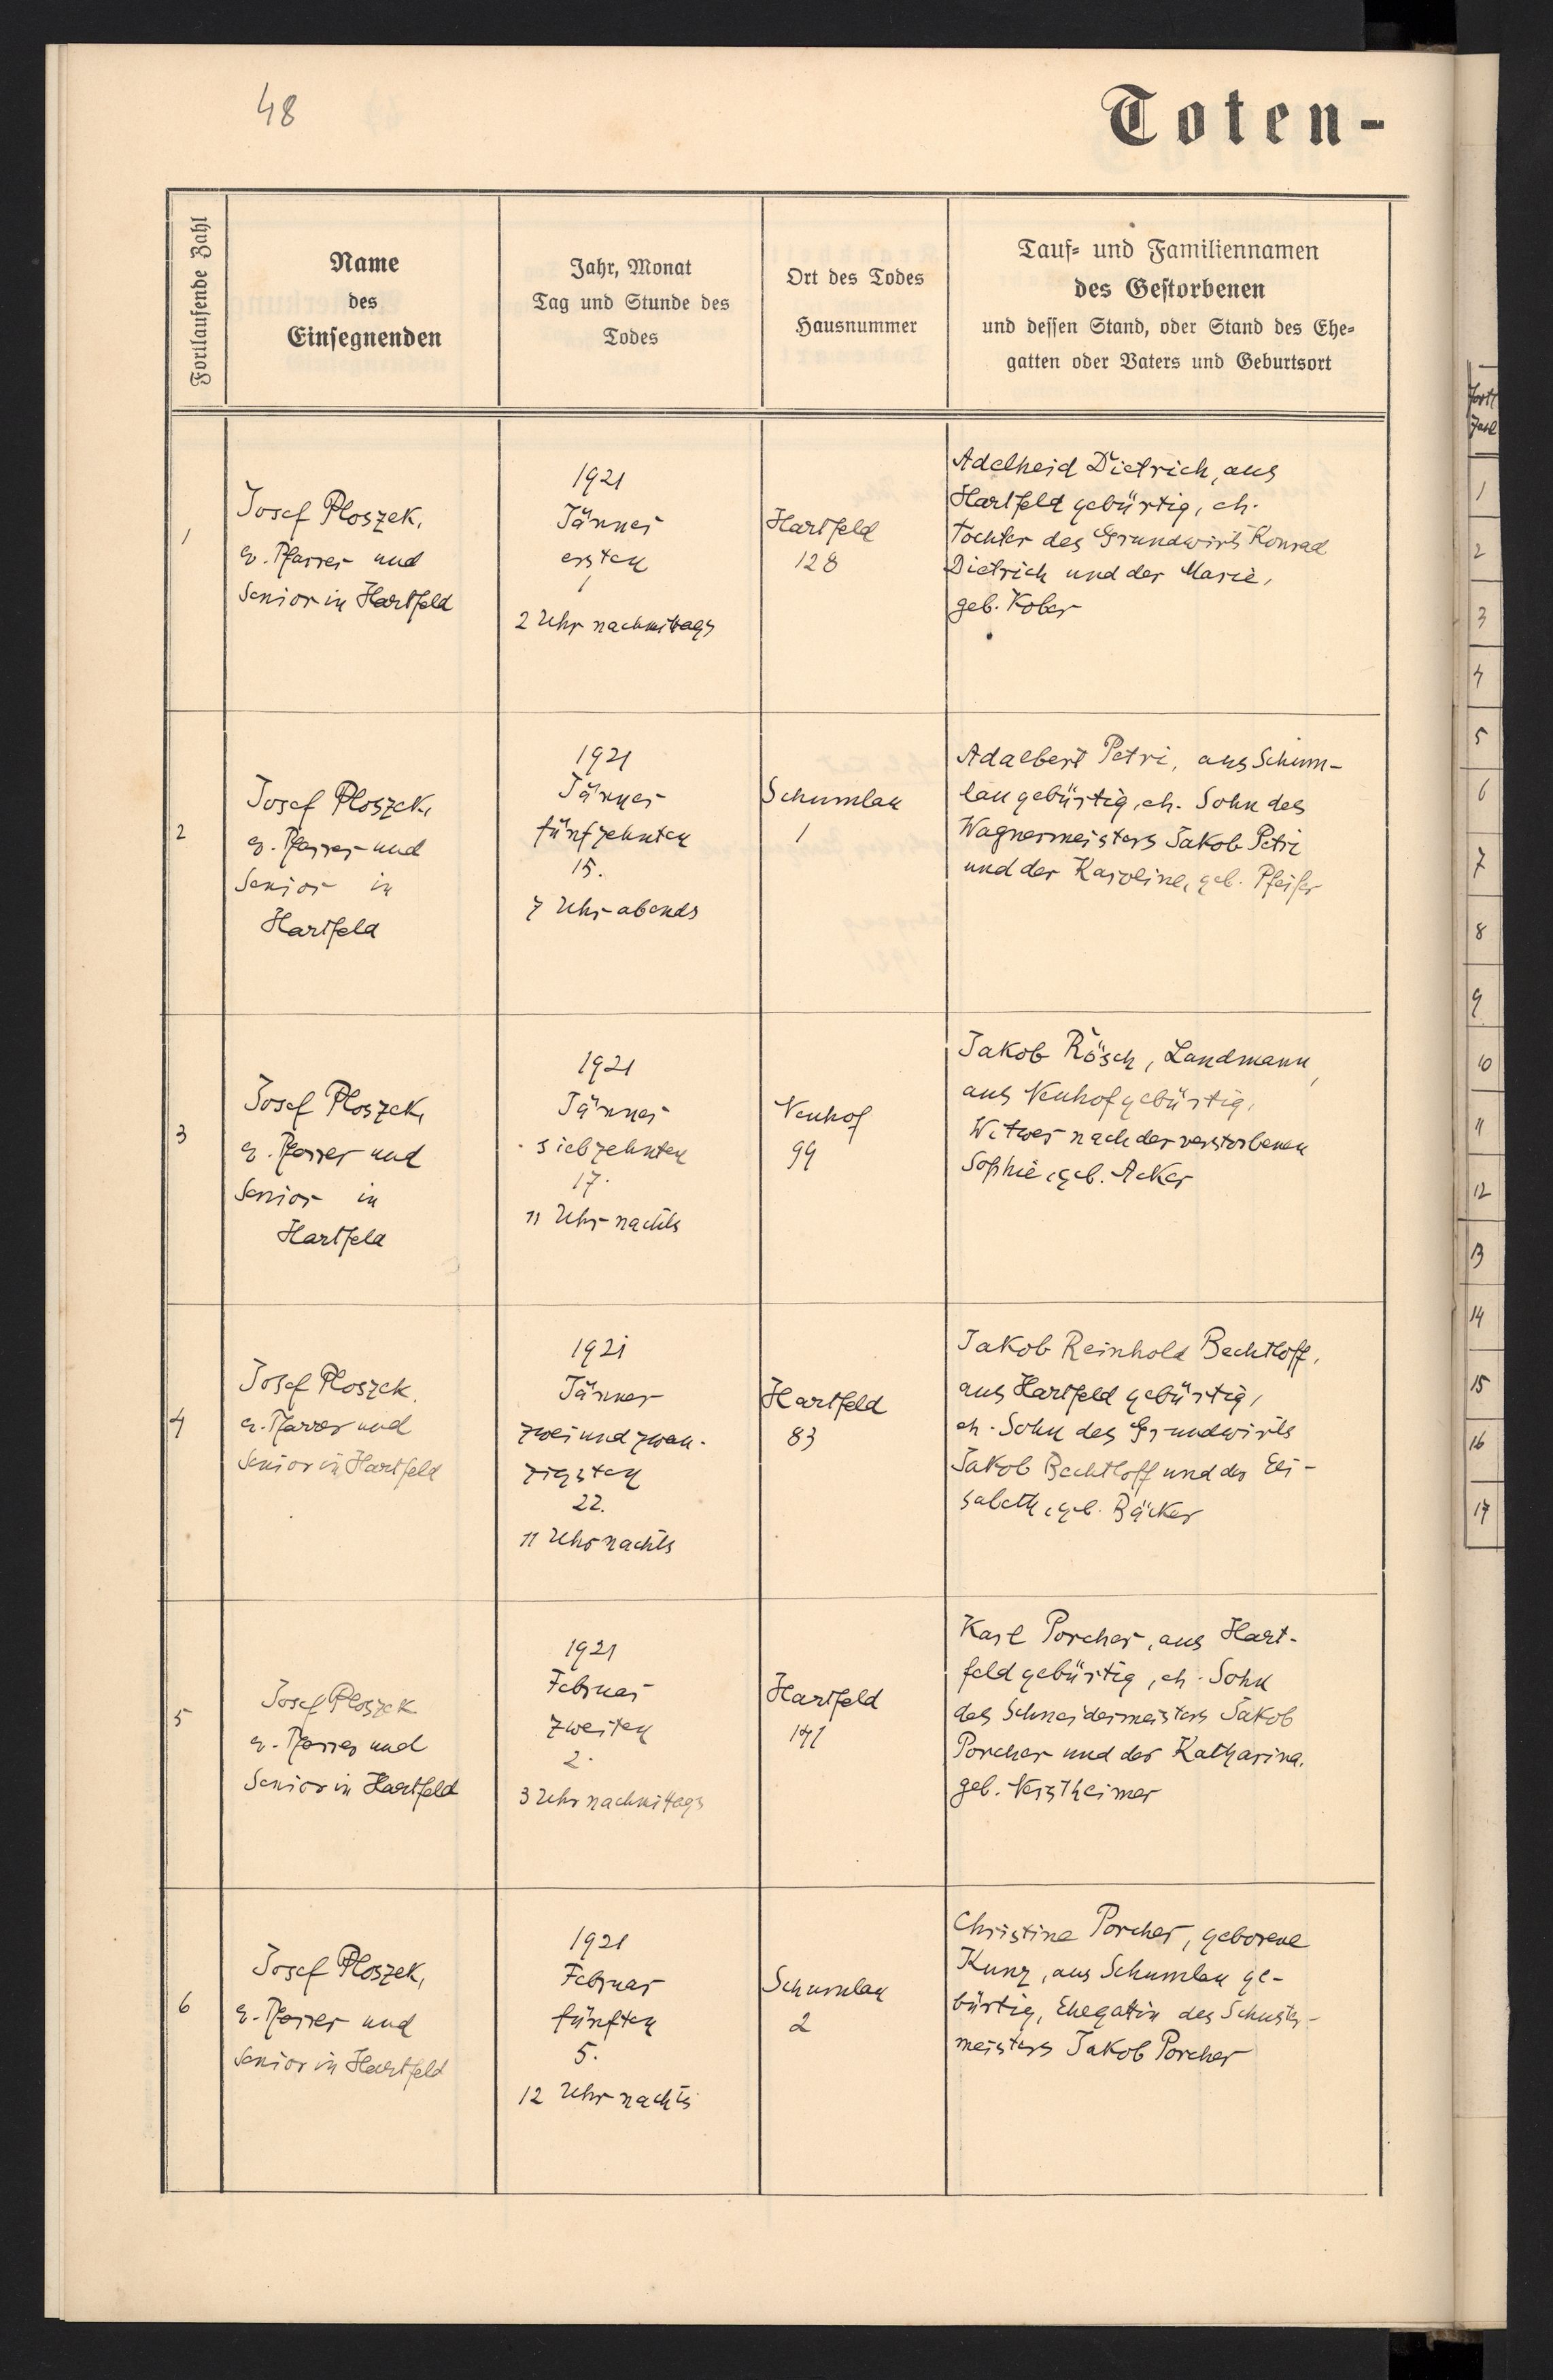 48
Toten-
Fortlaufende Zahl
Name
des
Einsegnenden
Jahr, Monat
Tag und Stunde des
Todes
Ort des Todes
Hausnummer
Tauf- und Familiennamen
des Gestorbenen
und dessen Stand, oder Stand des Ehe-
gatten oder Vaters und Geburtsort
1
Josef Ploszek,
ev. Pfarrer und
Senior in Hartfeld
1921
Jänner
ersten
1
2 Uhr nachmittags
Hartfeld
128
Adelheid Dietrich, aus
Hartfeld gebürtig, eh.
Tochter des Grundwirts Konrad
Dietrich und der Marie,
geb. Kober
2
Josef Ploszek,
ev. Pfarrer und
Senior in
Hartfeld
1921
Jänner
fünfzehnten
15.
7 Uhr abends
Schumlau
1
Adalbert Petri, aus Schum-
lau gebürtig, eh. Sohn des
Wagnermeisters Jakob Petri
und der Karoline, geb. Pfeifer
3
Josef Ploszek,
ev. Pfarrer und
Senior in
Hartfeld
1921
Jänner
siebzehnten
17.
11 Uhr nachts
Neuhof
99
Jakob Rösch, Landmann,
aus Neuhof gebürtig,
Witwer nach der verstorbenen
Sophie, geb. Acker
4
Josef Ploszek,
ev. Pfarrer und
Senior in Hartfeld
1921
Jänner
zweiundzwan-
zigsten
22.
11 Uhr nachts
Hartfeld
83
Jakob Reinhold Bechtloff,
aus Hartfeld gebürtig,
eh. Sohn des Grundwirts
Jakob Bechtloff und der Eli-
sabeth, geb. Bäcker
5
Josef Ploszek
ev. Pfarrer und
Senior in Hartfeld
1921
Februar
zweiten
2.
3 Uhr nachmittags
Hartfeld
141
Karl Porcher, aus Hart-
feld gebürtig, eh. Sohn
des Schneidermeisters Jakob
Porcher und der Katharina,
geb.
6
Josef Ploszek,
ev. Pfarrer und
Senior in Hartfeld
1921
Februar
fünften
5.
12 Uhr nachts
Schumlau
2
Christine Porcher, geborene
Kunz, aus Schumlau ge-
bürtig, Ehegatin des Schuster-
meisters Jakob Porcher
1
2
3
4
5
6
7
8
9
10
11
12
13
14
15
16
17